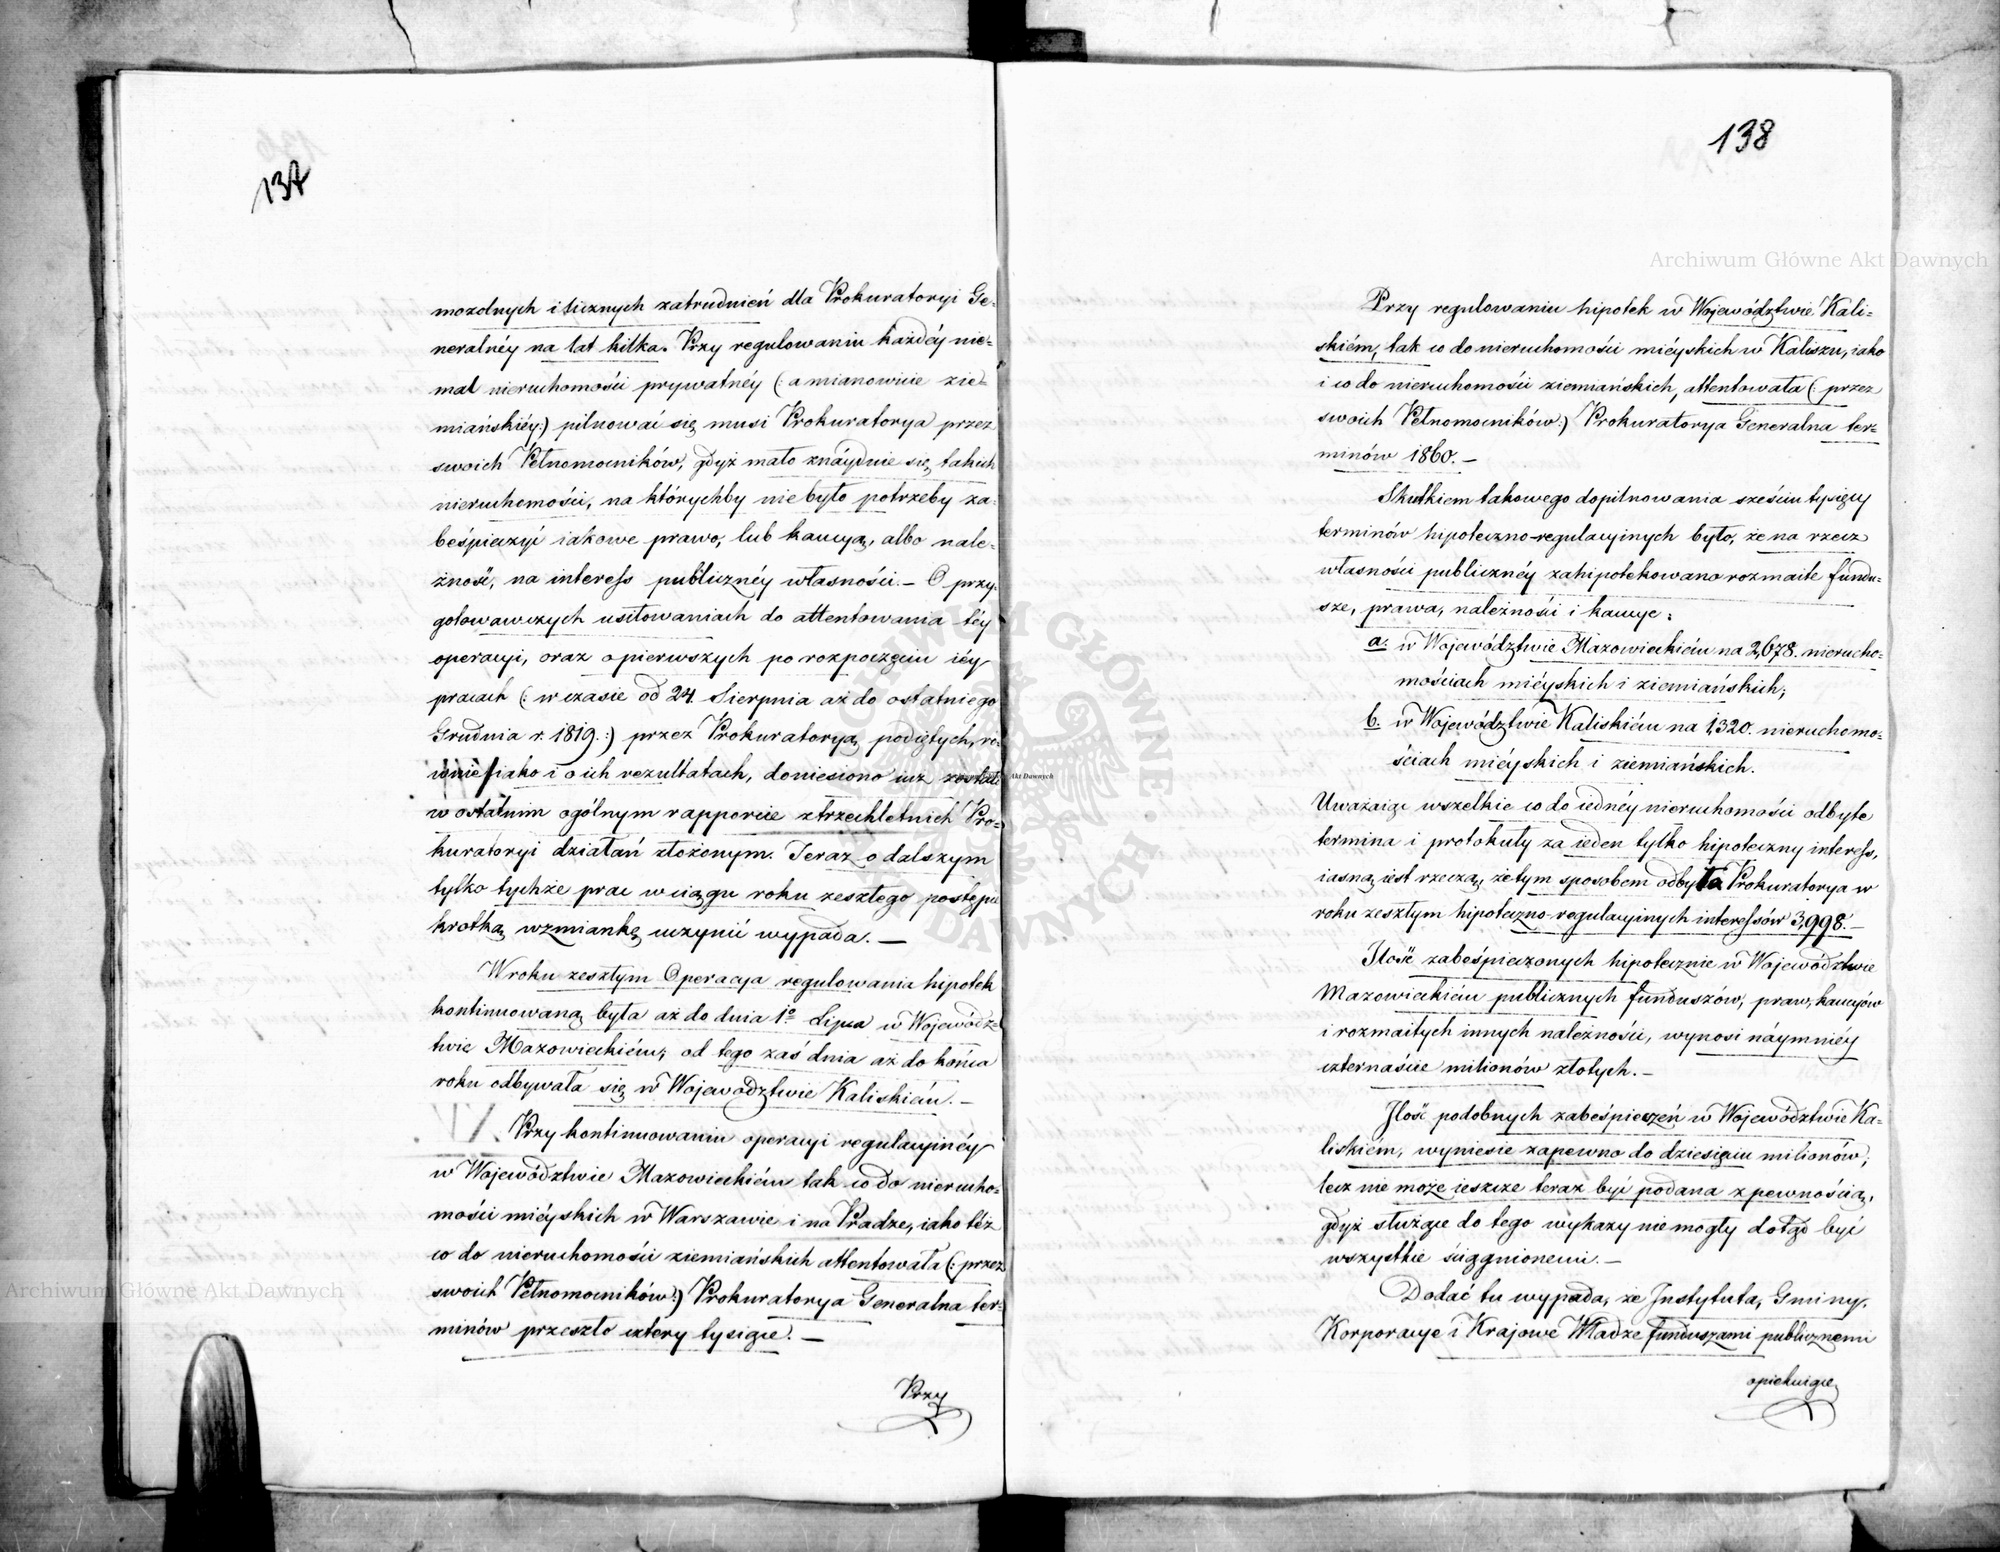 137
mozolnych i licznych zatrudnień dla Prokuratoryi Ge-
neralnéy na lat kilka. Przy regulowaniu każdéy nie-
mal nieruchomości prywatnéy (: a mianowicie zie-
miańskiéy:) pilnować się musi Prokuratorya przez
swoich Pełnomocników, gdyż mało znáydzie się takich
nieruchomości, na którychby nie było potrzeby za-
beśpieczyć iakowe prawo, lub kaucyą, albo nale-
żność, na interess publicznéy własności. — O przy-
gotowawczych usiłowaniach do attentowania téy
operacyi, oraz o pierwszych po rozpoczęciu iéy
pracach (: w czasie od 24. Sierpnia aż do ostatniego
Grudnia r. 1819.:) przez Prokuratoryą podiętych, ró-
wnie iako i o ich rezultatach, doniesiono iuż zostało
w ostatnim ogólnym rapporcie z trzechletnich Pro-
kuratoryi działań złożonym. Teraz o dalszym
tylko tychże prac w ciągu roku zeszłego postępie
krotką wzmiankę uczynić wypada. —
W roku zeszłym Operacya regulowania hipotek
kontinuowaną była aż do dnia 1º Lipca w Wojewódz-
twie Mazowieckiém; od tego zaś dnia aż do końca
roku odbywała się w Województwie Kaliskiém. —
Przy kontinuowaniu operacyi regulacyinéy
w Województwie Mazowieckiém tak co do nierucho-
mości miéyskich w Warszawie i na Pradze, iako też
co do nieruchomości ziemiańskich attentowała (: przez
swoich Pełnomocników:) Prokuratorya Generalna ter-
minów przeszło cztery tysiące. —
Przy
138
Przy regulowaniu hipotek w Województwie Kali-
skiém, tak co do nieruchomości miéyskich w Kaliszu, iako
i co do nieruchomości ziemiańskich, attentowała (: przez
swoich Pełnomocników:) Prokuratorya Generalna ter-
minów 1860. —
Skutkiem takowego dopilnowania sześciu tysięcy
terminów hipoteczno-regulacyinych było, że na rzecz
własności publicznéy zahipotekowano rozmaite fundu-
sze, prawa, należności i kaucye:
a. w Województwie Mazowieckiém na 2,678. nierucho-
mościach miéyskich i ziemiańskich;
b. w Województwie Kaliskiém na 1,320. nieruchomo-
ściach miéyskich i ziemiańskich.
Uważaiąc wszelkie co do iednéy nieruchomości odbyte
termina i protokuły za ieden tylko hipoteczny interess,
iasną iest rzeczą, że tym sposobem odbyła Prokuratorya w
roku zeszłym hipoteczno-regulacyinych interessów 3,998. —
Ilość zabeśpieczonych hipotecznie w Województwie
Mazowieckiém publicznych funduszów, praw, kaucyów
i rozmaitych innych należności, wynosi náymniéy
czternaście milionów złotych. —
Ilość podobnych zabeśpieczeń w Województwie Ka-
liskiém, wyniesie zapewne do dziesięciu milionów;
lecz nie może ieszcze teraz być podana z pewnością,
gdyż służące do tego wykazy nie mogły dotąd być
wszystkie ściągnionemi. —
Dodać tu wypada, że Instytuta, Gminy,
Korporacye i Krajowe Władze funduszami publicznemi
opiekuiące
Archiwum Główne Akt Dawnych
Archiwum Główne Akt Dawnych
ARCHIWUM GŁÓWNE AKT DAWNYCH